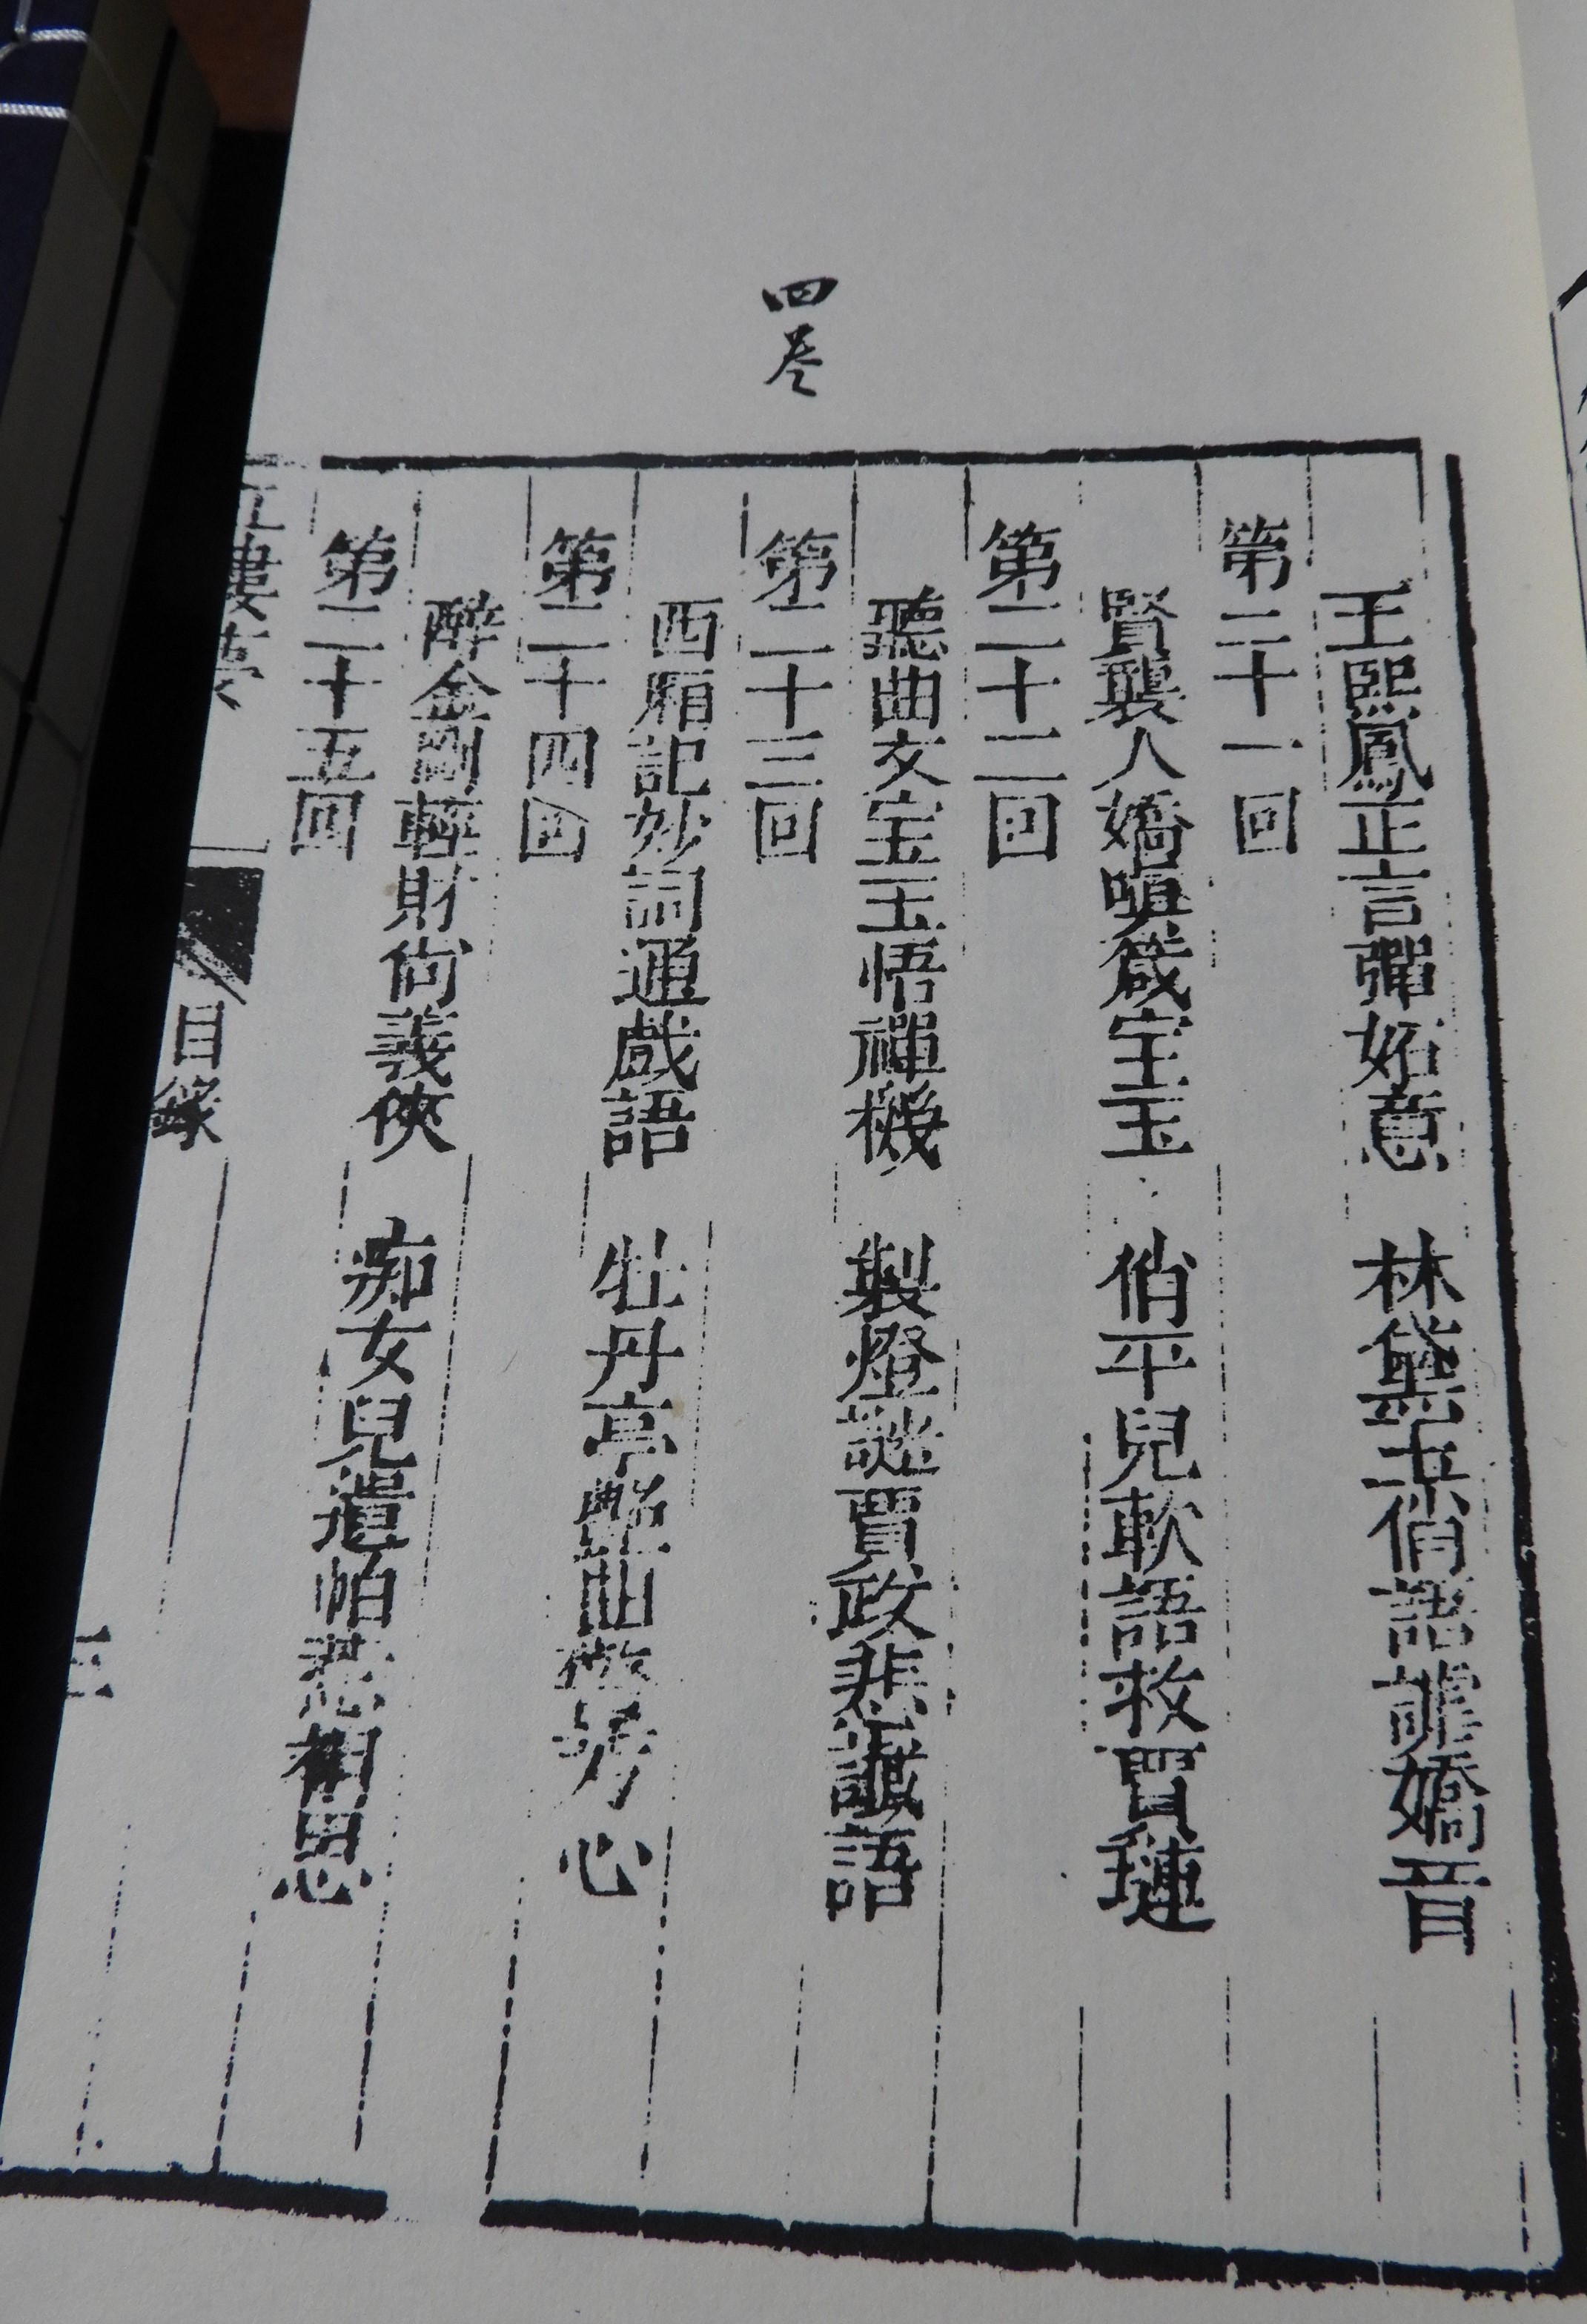 四卷
王熙鳳正言彈妬意 林黛玉俏語謔嬌音
第二十一回
賢襲人嬌嗔箴宝玉 俏平兒軟語救賈璉
第二十二回
聽曲文宝玉悟禪機 製燈謎賈政悲讖語
第二十三回
西厢記妙詞通戯語 牡丹亭艷曲警芳心
第二十四回
醉金剛輕財尙義俠 痴女兒遺帕惹相思
第二十五回
紅樓夢 目錄 三